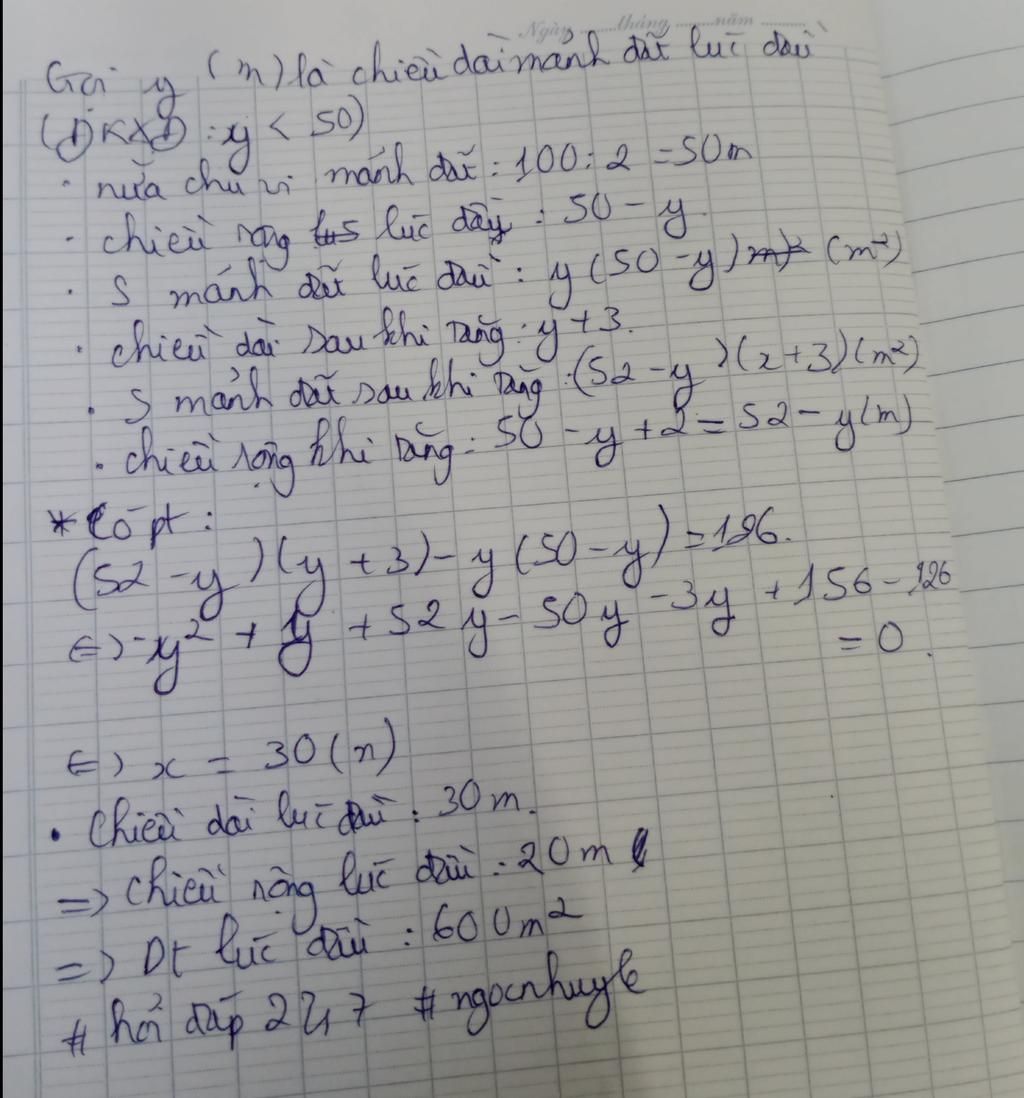 Ngày tháng năm
Gọi y (m) là chiều dài mảnh đất lúc đầu
(ĐKXĐ : y < 50)
. nửa chu vi mảnh đất : 100 : 2 = 50m
. chiều rộng lúc đầu : 50 - y.
. S mảnh đất lúc đầu : y (50 - y) (m²)
. chiều dài sau khi tăng : y + 3.
. S mảnh đất sau khi tăng : (52 - y)(x + 3)(m²)
. chiều rộng khi tăng : 50 - y + 2 = 52 - y(m)
* Có pt :
(52 - y)(y + 3) - y(50 - y) = 126.
<=> -y² + y + 52y - 50y - 3y + 156 - 126
= 0.
<=> x = 30 (n)
. Chiều dài lúc đầu : 30m.
=> Chiều rộng lúc đầu : 20m
=> Dt lúc đầu : 600m²
# hỏi đáp 247 # ngocnhuy6